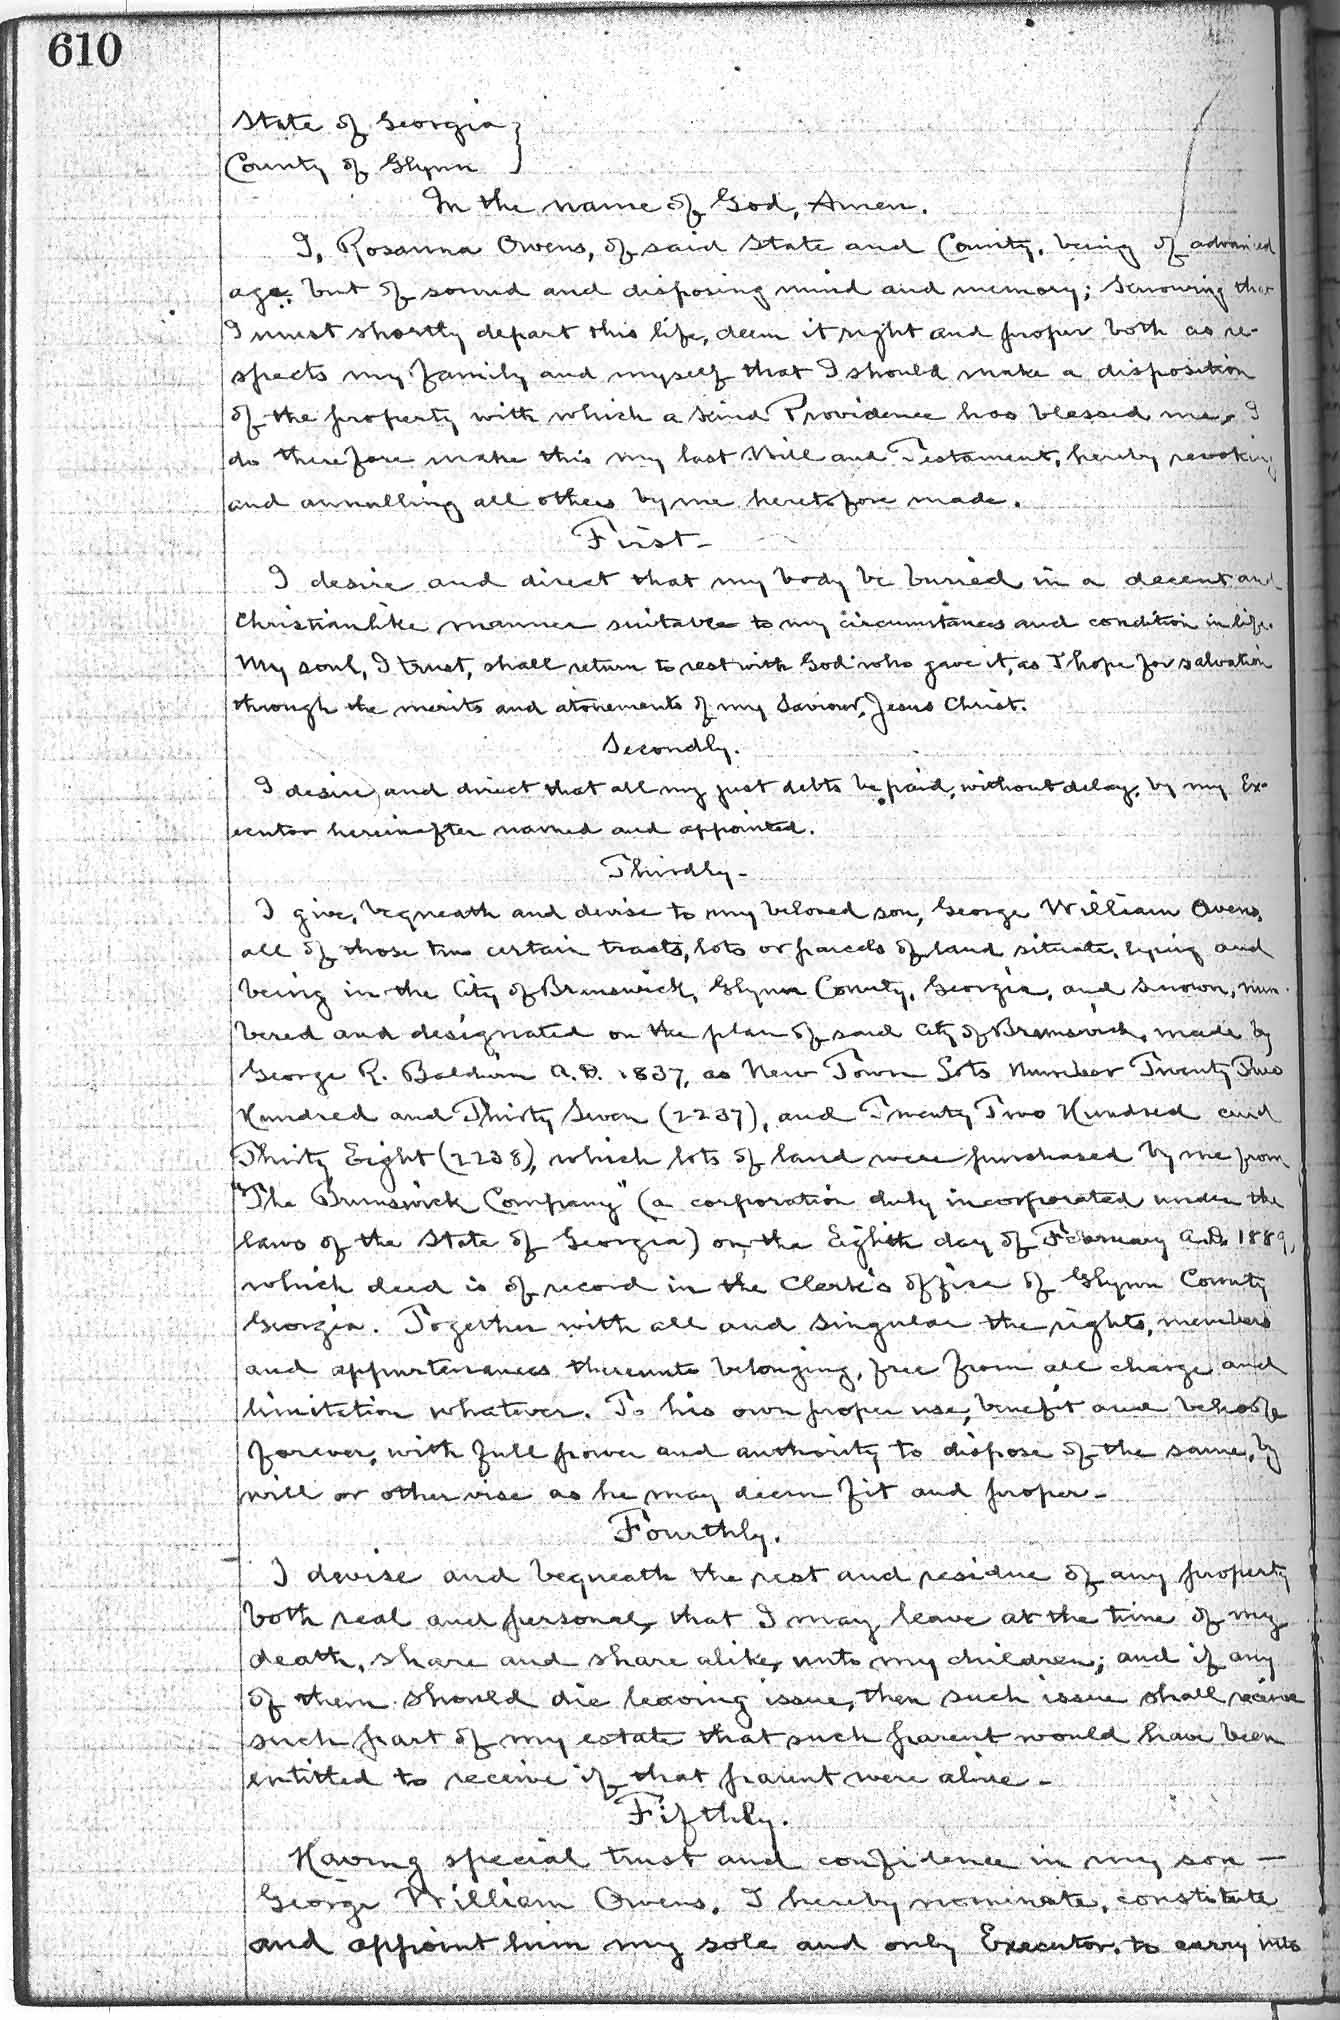 610
State of Georgia }
County of Glynn }
In the name of God, Amen.
I, Rosanna Owens, of said State and County, being of advanced
age, but of sound and disposing mind and memory; knowing that
I must shortly depart this life, deem it right and proper both as re-
spects my family and myself that I should make a disposition
of the property with which a kind Providence has blessed me, I
do therefore make this my last Will and Testament, hereby revoking
and annulling all others by me heretofore made.
First-
I desire and direct that my body be buried in a decent and
Christianlike manner suitable to my circumstances and condition in life.
My soul, I trust, shall return to rest with God who gave it, as I hope for salvation
through the merits and atonements of my Saviour, Jesus Christ.
Secondly.
I desire, and direct that all my just debts be paid, without delay, by my Ex-
ecutor hereinafter named and appointed.
Thirdly-
I give, bequeath and devise to my beloved son, George William Owens,
all of those two certain tracts, lots or parcels of land situate, lying and
being in the City of Brunswick, Glynn County, Georgia, and known, num-
bered and designated on the plan of said City of Brunswick, made by
George R. Baldwin A.D. 1837, as New Town Lots Number Twenty Two
Hundred and Thirty Seven (2237), and Twenty Two Hundred and
Thirty Eight (2238), which lots of land were purchased by me from
"The Brunswick Company" (a corporation duly incorporated under the
laws of the State of Georgia) on the Eighth day of February A.D. 1889,
which deed is of record in the Clerk's office of Glynn County
Georgia. Together with all and singular the rights, members
and appurtenances thereunto belonging, free from all charge and
limitation whatever. To his own proper use, benefit and behoofe
forever, with full power and authority to dispose of the same, by
will or otherwise as he may deem fit and proper-
Fourthly.
I devise and bequeath the rest and residue of any property
both real and personal, that I may leave at the time of my
death, share and share alike, unto my children; and if any
of them should die leaving issue, then such issue shall receive
such part of my estate that such parent would have been
entitled to receive if that parent were alive-
Fifthly.
Having special trust and confidence in my son-
George William Owens, I hereby nominate, constitute
and appoint him my sole and only Executor, to carry into